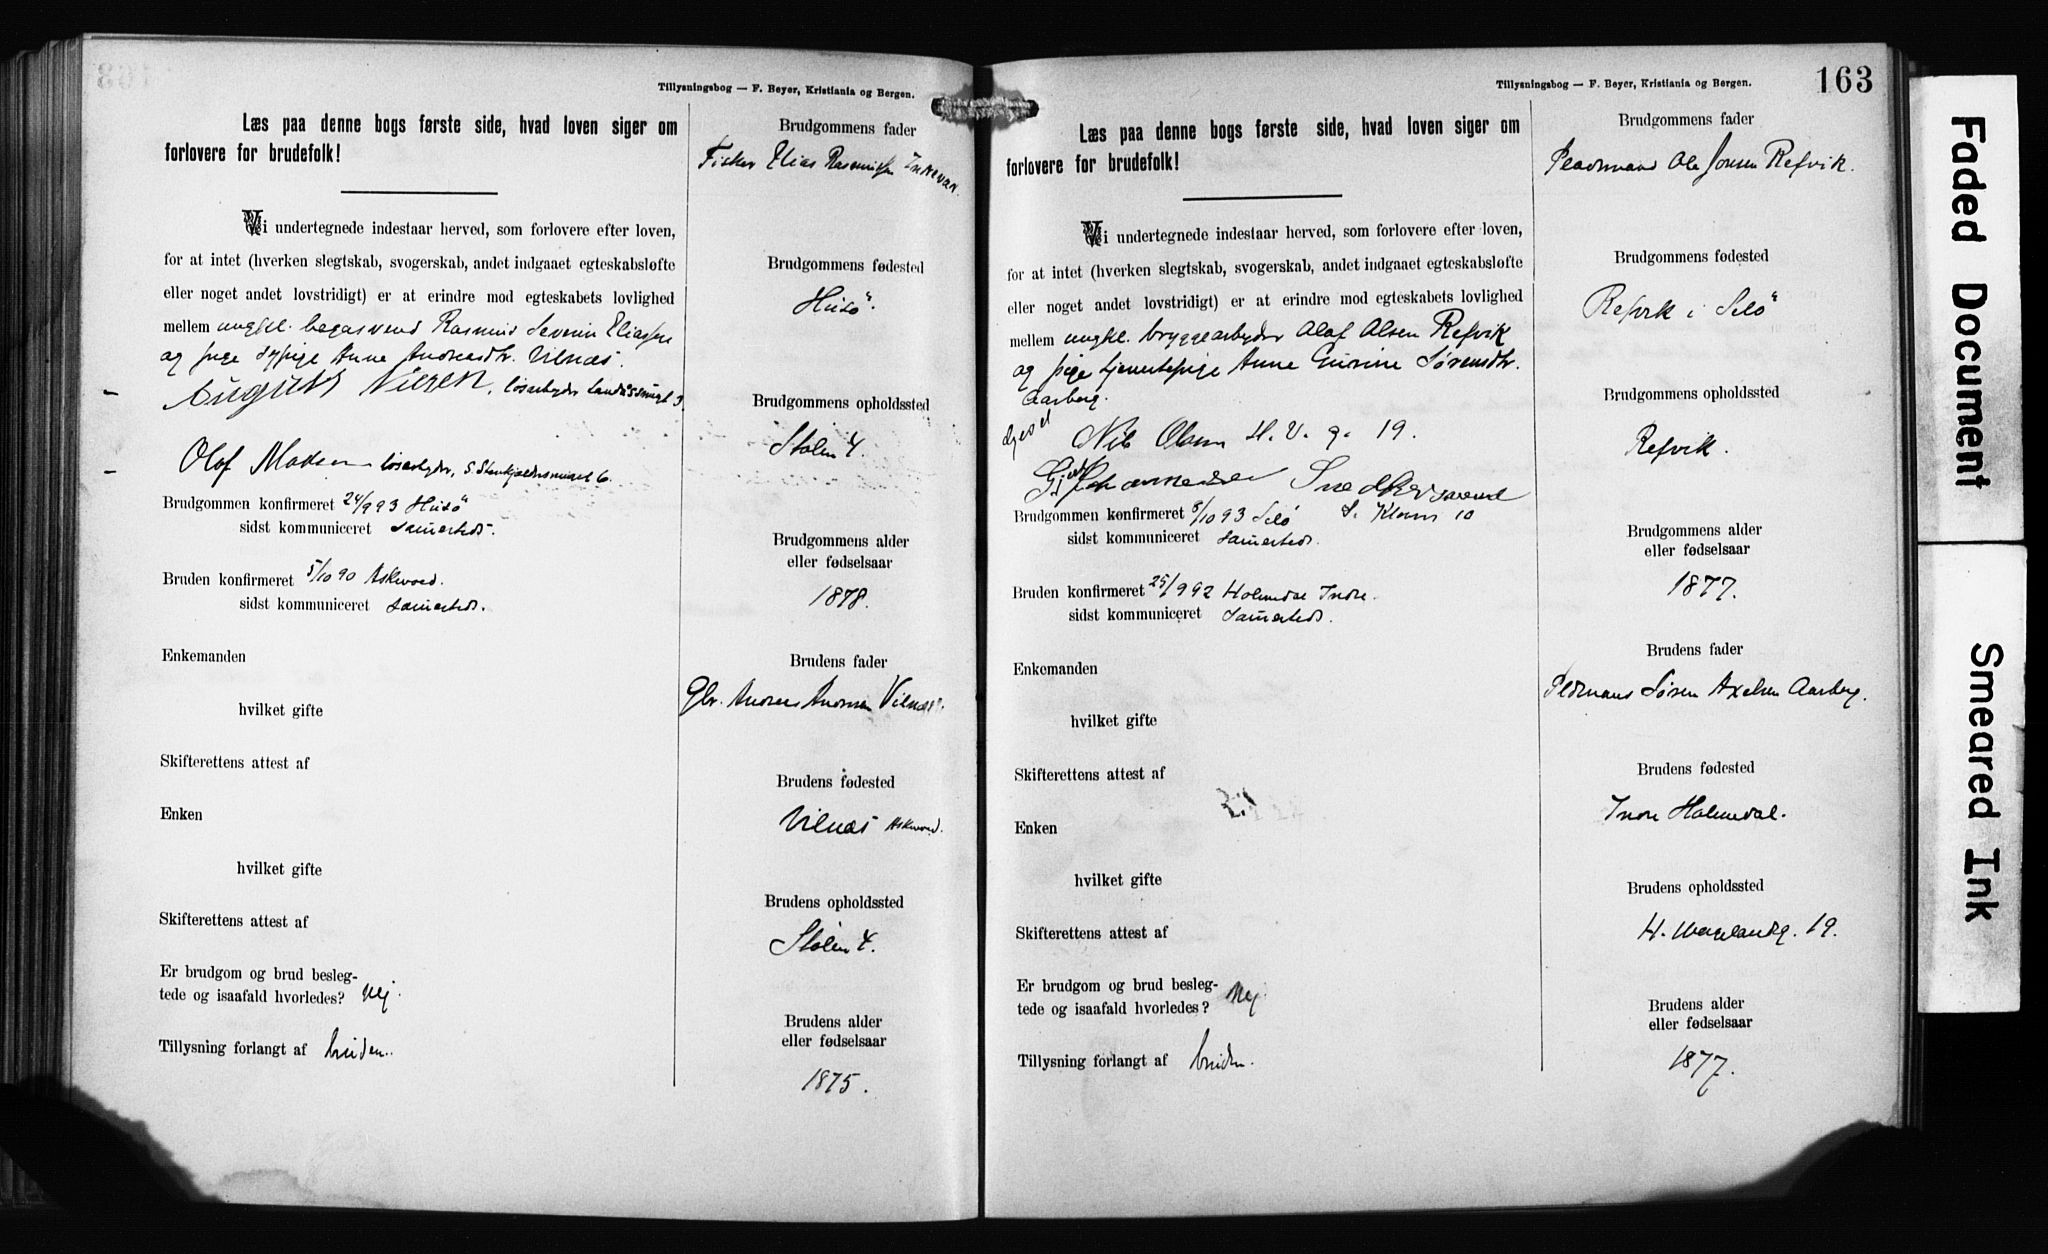 Tillysningsbog — F. Beyer, Kristiania og Bergen.
Læs paa denne bogs første side, hvad loven siger om
forlovere for brudefolk!
Vi undertegnede indestaar herved, som forlovere efter loven,
for at intet (hverken slegtskab, svogerskab, andet indgaaet egteskabsløfte
eller noget andet lovstridigt) er at erindre mod egteskabets lovlighed
mellem ungkl. Rasmus Severin Eliassen
og pige sypige Anne Andreasdtr. Vilnæs.
August Nilsen, løsarbeider
Olaf Madsen løsarbeider, 6.
Brudgommen konfirmeret 24/9 93 Husö
sidst kommuniceret sammesteds.
Bruden konfirmeret 5/10 90 Askvold.
sidst kommuniceret sammesteds.
Enkemanden
hvilket gifte
Skifterettens attest af
Enken
hvilket gifte
Skifterettens attest af
Er brudgom og brud besleg-
tede og isaafald hvorledes? Nej.
Tillysning forlangt af bruden.
Brudgommens fader
Fisker Elias Rasmussen
Brudgommens fødested
Husö.
Brudgommens opholdssted
Stølen 4.
Brudgommens alder
eller fødselsaar
1878.
Brudens fader
Gbr. Andreas Andersen Vilnæs.
Brudens fødested
Vilnæs Askvold.
Brudens opholdssted
Stølen 4.
Brudens alder
eller fødselsaar
1875.
Tillysningsbog — F. Beyer, Kristiania og Bergen.
163
Læs paa denne bogs første side, hvad loven siger om
forlovere for brudefolk!
Vi undertegnede indestaar herved, som forlovere efter loven,
for at intet (hverken slegtskab, svogerskab, andet indgaaet egteskabsløfte
eller noget andet lovstridigt) er at erindre mod egteskabets lovlighed
mellem ungkl. bryggearbeider Olaf Olsen Refvik
og pige tjenestepige Anne Gurine Sørensdtr.
Aarberg.
Nils Olsen H. V. g. 19.
Johannessen Snedkersvend
10
Brudgommen konfirmeret 8/10 93 Selö
sidst kommuniceret sammesteds.
Bruden konfirmeret 25/9 92 Holmedal Indre.
sidst kommuniceret sammesteds.
Enkemanden
hvilket gifte
Skifterettens attest af
Enken
hvilket gifte
Skifterettens attest af
Er brudgom og brud besleg-
tede og isaafald hvorledes? Nej.
Tillysning forlangt af bruden.
Brudgommens fader
Pladsmand Ole Jonsen Refvik.
Brudgommens fødested
Refvik i Selö
Brudgommens opholdssted
Refvik.
Brudgommens alder
eller fødselsaar
1877.
Brudens fader
Pldmans Søren Axelsen Aarberg.
Brudens fødested
Indre Holmedal.
Brudens opholdssted
H. Wergelandsg. 19.
Brudens alder
eller fødselsaar
1877.
Faded Document
Smeared Ink